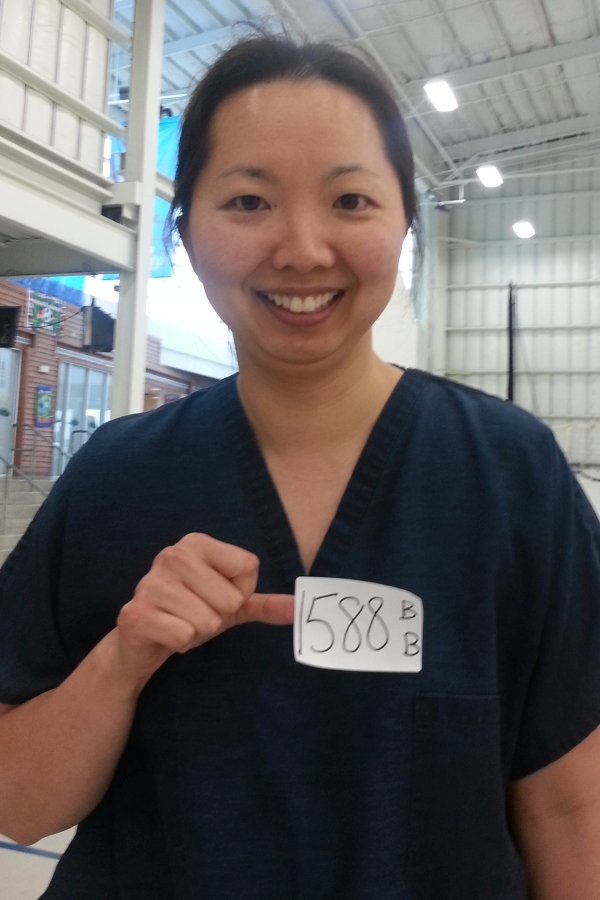 1588 B
B